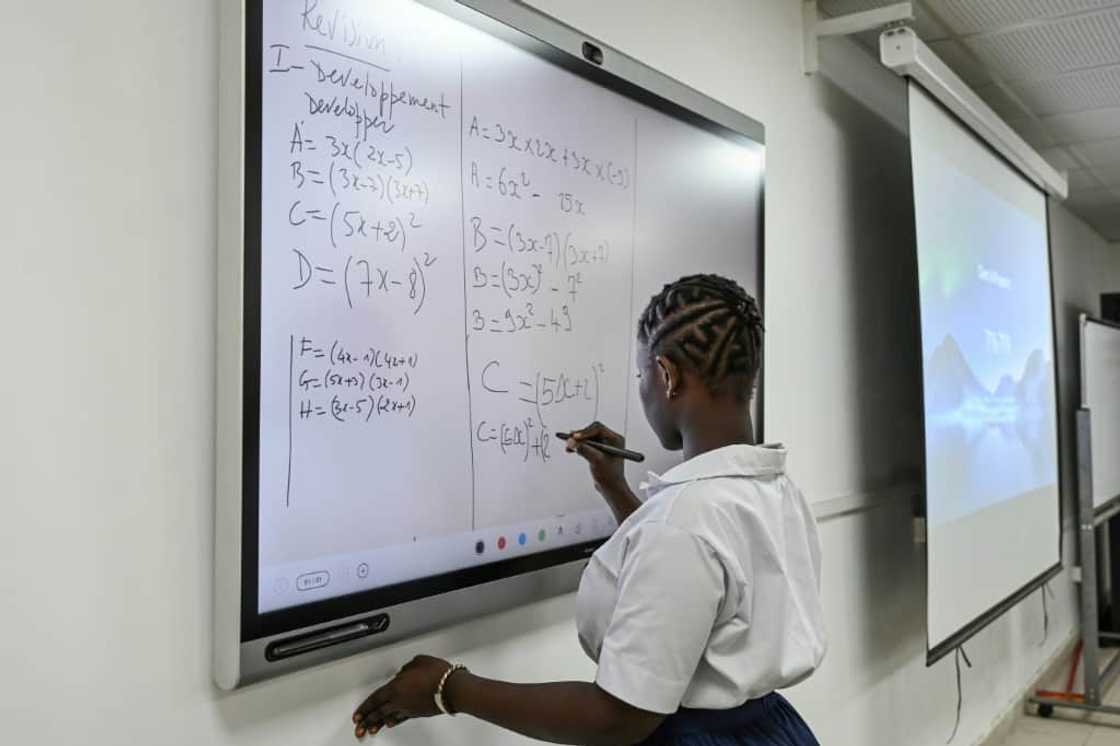 Revision
I- Developpement
Developper
A = 3x(2x-5)
B = (3x-7)(3x+7)
C = (5x+2)²
D = (7x-8)²
F = (4x-1)(4x+1)
G = (5x+3)(3x-1)
H = (3x-5)(-2x+1)
A = 3x×2x+3x×(-5)
A = 6x² - 15x
B = (3x-7)(3x+7)
B = (3x)² - 7²
B = 9x² - 49
C = (5x+2)²
C = (5x)² + (2